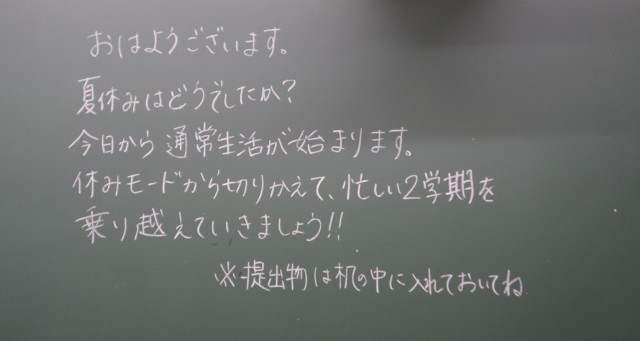 おはようございます。
夏休みはどうでしたか?
今日から通常生活が始まります。
休みモードから切りかえて、忙しい2学期を
乗り越えていきましょう!!
※提出物は机の中に入れておいてね.